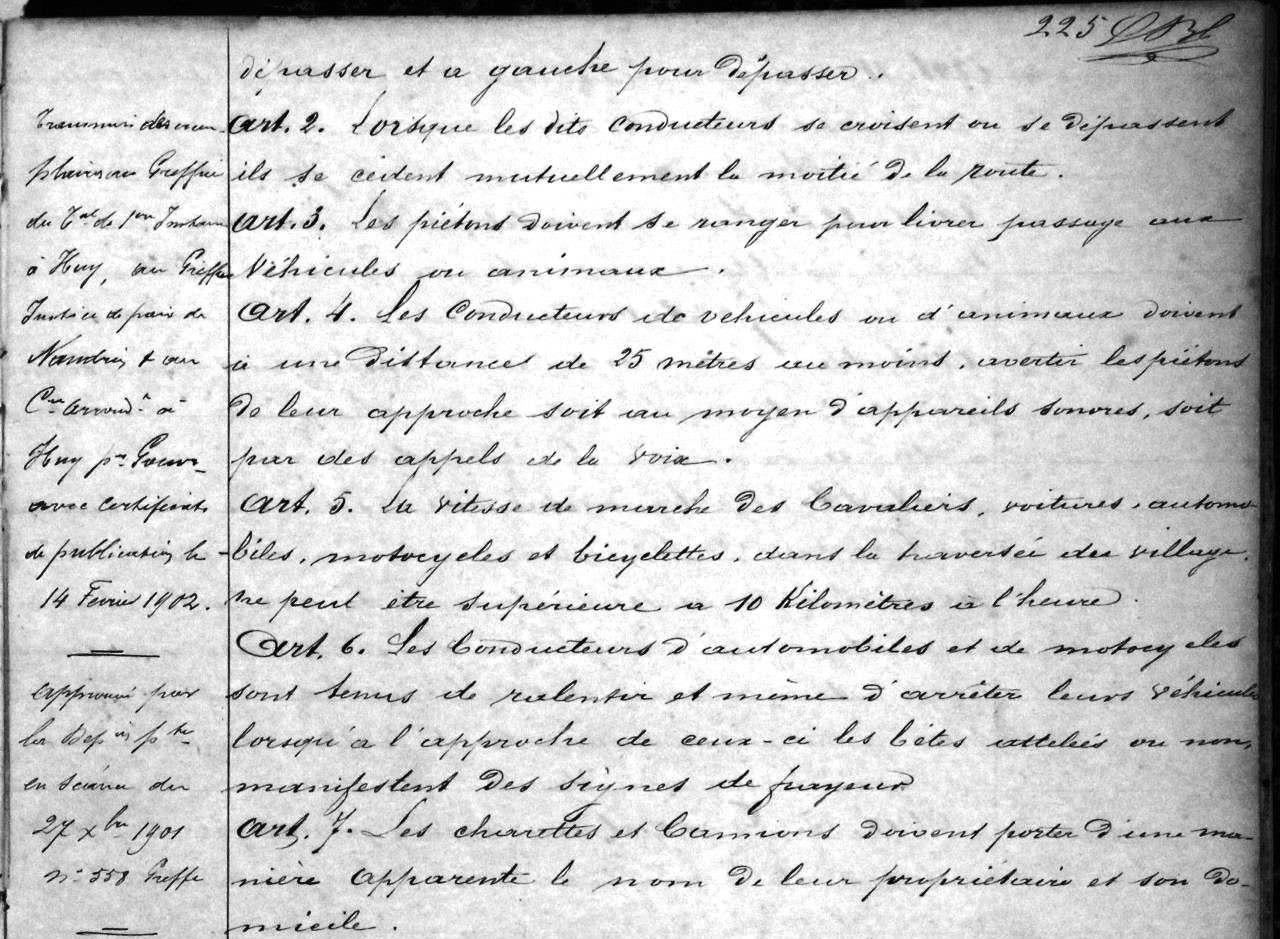 225
dépasser et a gauche pour dépasser.
Art. 2. Lorsque les dits conducteurs se croisent ou se dépassent
ils se cèdent mutuellement la moitié de la route.
Art. 3. Les piétons doivent se ranger pour livrer passage aux
Véhicules ou animaux.
Art. 4. Les Conducteurs de vehicules ou d'animaux doivent
à une distance de 25 mètres au moins, avertir les piétons
de leur approche soit au moyen d'appareils sonores, soit
par des appels de la voix.
Art. 5. La vitesse de marche des Cavaliers, voitures, automo-
biles, motocycles et bicyclettes, dans la traversée du village,
ne peut être supérieure a 10 Kilomètres à l'heure.
Art. 6. Les Conducteurs d'automobiles et de motocycles
sont tenus de ralentir et même d'arrêter leurs véhicules
lorsqu'a l'approche de ceux-ci les bêtes attelées ou non,
manifestent des signes de frayeur
Art. 7. Les charrettes et Camions doivent porter d'une ma-
nière apparente le nom de leur propriétaire et son do-
micile.
Transmis des exem-
plaires au Greffier
du Tal de 1ère Instance
à Huy, au Greffe
Justice de paix de
Nandrin & au
Cre arrondt à
Huy pr Gouvr
avec certificats
de publication le
14 Fevrier 1902.
Approuvé par
la Dépon pte
en séance du
27 Xbre 1901
n° 558 Greffe